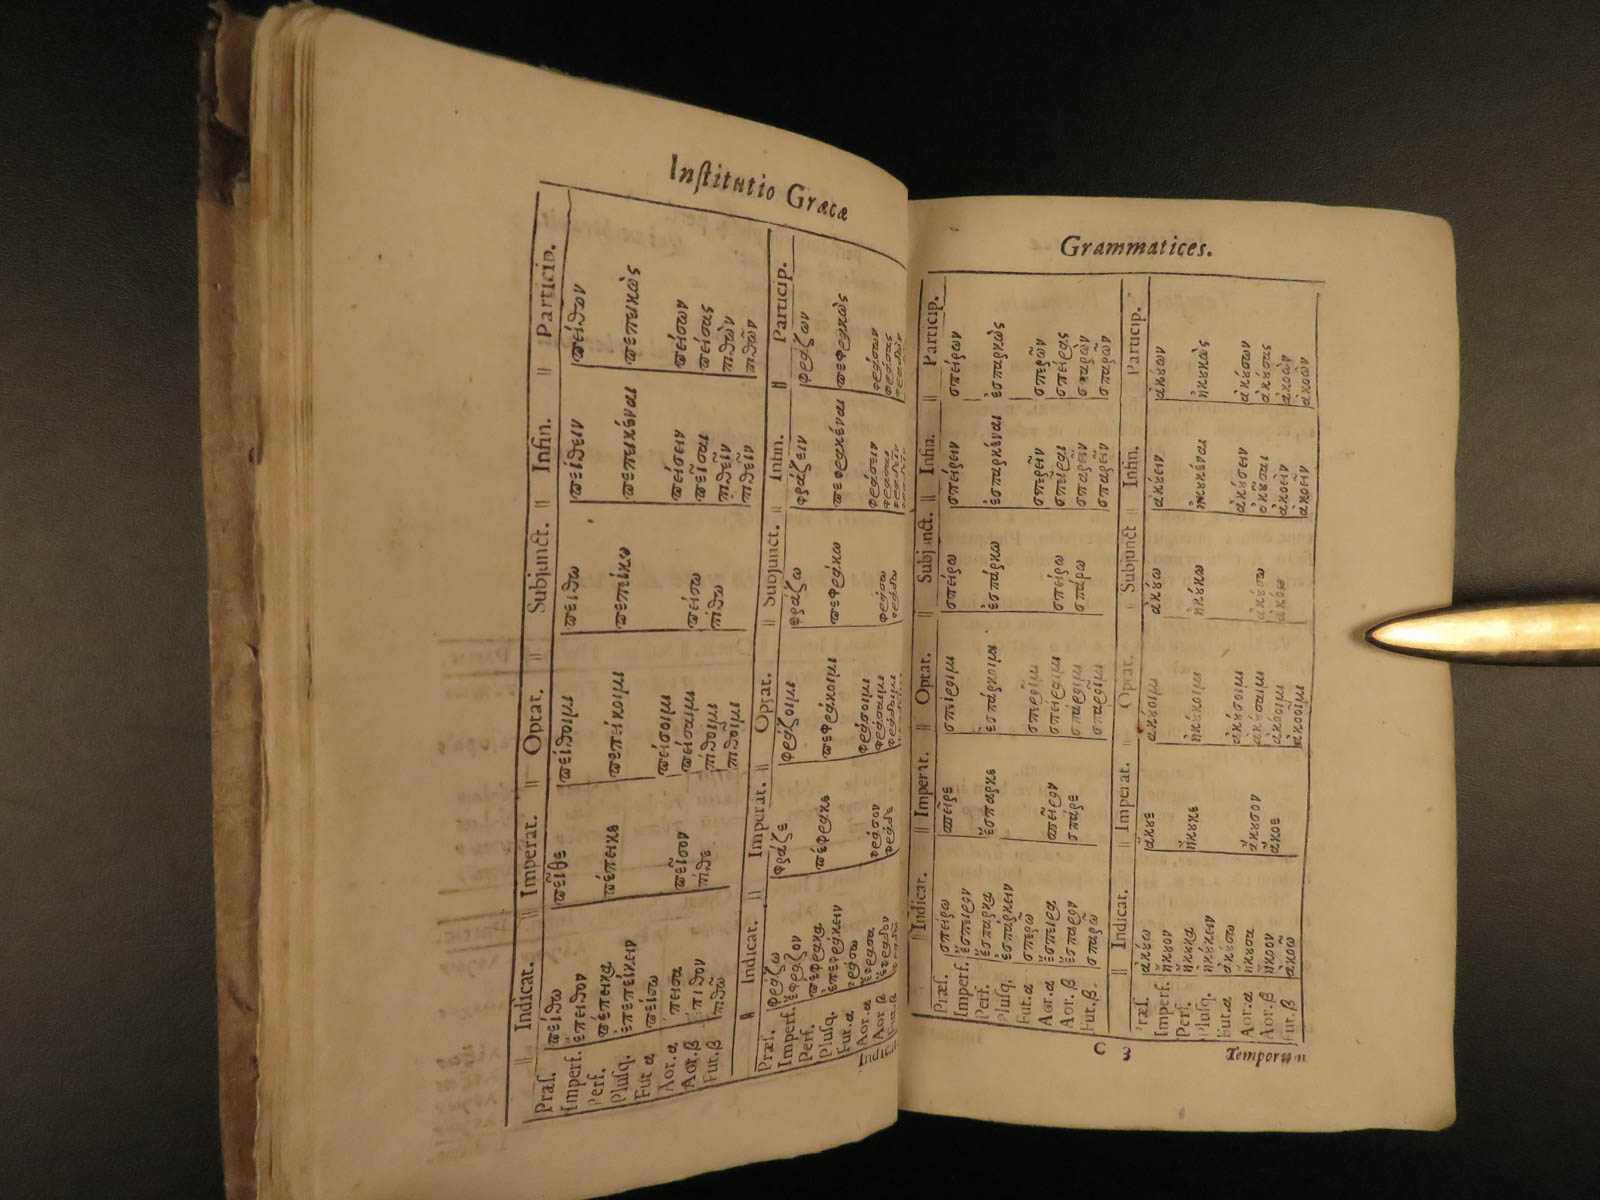 Institutio Græcæ
|| Indicat. || Imperat. || Optat. || Subjunct. || Infin. || Particip.
Præs. πείθω πεῖθε πείθοιμι πείθω πείθειν πείθων
Imperf. ἔπειθον
Perf. πέπεικα πέπεικε πεπείκοιμι πεπείκω πεπεικέναι πεπεικὼς
Plusq. ἐπεπείκειν
Fut. α πείσω πείσοιμι πείσειν πείσων
Aor. α ἔπεισα πεῖσον πείσαιμι πείσω πεῖσαι πείσας
Aor. β ἔπιθον πίθε πίθοιμι πίθω πιθεῖν πιθὼν
Fut. β πιθῶ πιθοῖμι πιθεῖν πιθῶν
|| Indicat. || Imperat. || Optat. || Subjunct. || Infin. || Particip.
Præs. φράζω φράζε φράζοιμι φράζω φράζειν φράζων
Imperf. ἔφραζον
Perf. πέφρακα πέφρακε πεφράκοιμι πεφράκω πεφρακέναι πεφρακὼς
Plusq. ἐπεφράκειν
Fut. α φράσω φράσοιμι φράσειν φράσων
Aor. α ἔφρασα φράσον φράσαιμι φράσω φράσαι φράσας
Aor. β ἔφραδον φράδε φράδοιμι φράδω
Fut. β
Indicat.
Grammatices.
|| Indicat. || Imperat. || Optat. || Subjunct. || Infin. || Particip.
Præs. σπείρω σπεῖρε σπείροιμι σπείρω σπείρειν σπείρων
Imperf. ἔσπειρον
Perf. ἔσπαρκα ἔσπαρκε ἐσπάρκοιμι ἐσπάρκω ἐσπαρκέναι ἐσπαρκὼς
Plusq. ἐσπάρκειν
Fut. α σπερῶ σπεροῖμι σπερεῖν σπερῶν
Aor. α ἔσπειρα σπεῖρον σπείραιμι σπείρω σπεῖραι σπείρας
Aor. β ἔσπαρον σπάρε σπάροιμι σπάρω σπαρεῖν σπαρὼν
Fut. β. σπαρῶ σπαροῖμι σπαρεῖν σπαρῶν
|| Indicat. || Imperat. || Optat. || Subjunct || Infin. || Particip.
Præs. ἀκούω ἄκουε ἀκούοιμι ἀκούω ἀκούειν ἀκούων
Imperf. ἤκουον
Perf. ἤκουκα ἤκουκε ἠκούκοιμι ἠκούκω ἠκουκέναι ἠκουκὼς
Plusq. ἠκούκειν
Fut. α ἀκούσω ἀκούσοιμι ἀκούσειν ἀκούσων
Aor. α ἤκουσα ἄκουσον ἀκούσαιμι ἀκούσω ἀκοῦσαι ἀκούσας
Aor. β ἤκοον ἄκοε ἀκόοιμι ἀκόω ἀκοεῖν ἀκοὼν
Fut. β ἀκοῶ ἀκοοῖμι ἀκοεῖν ἀκοῶν
C 3 Temporum